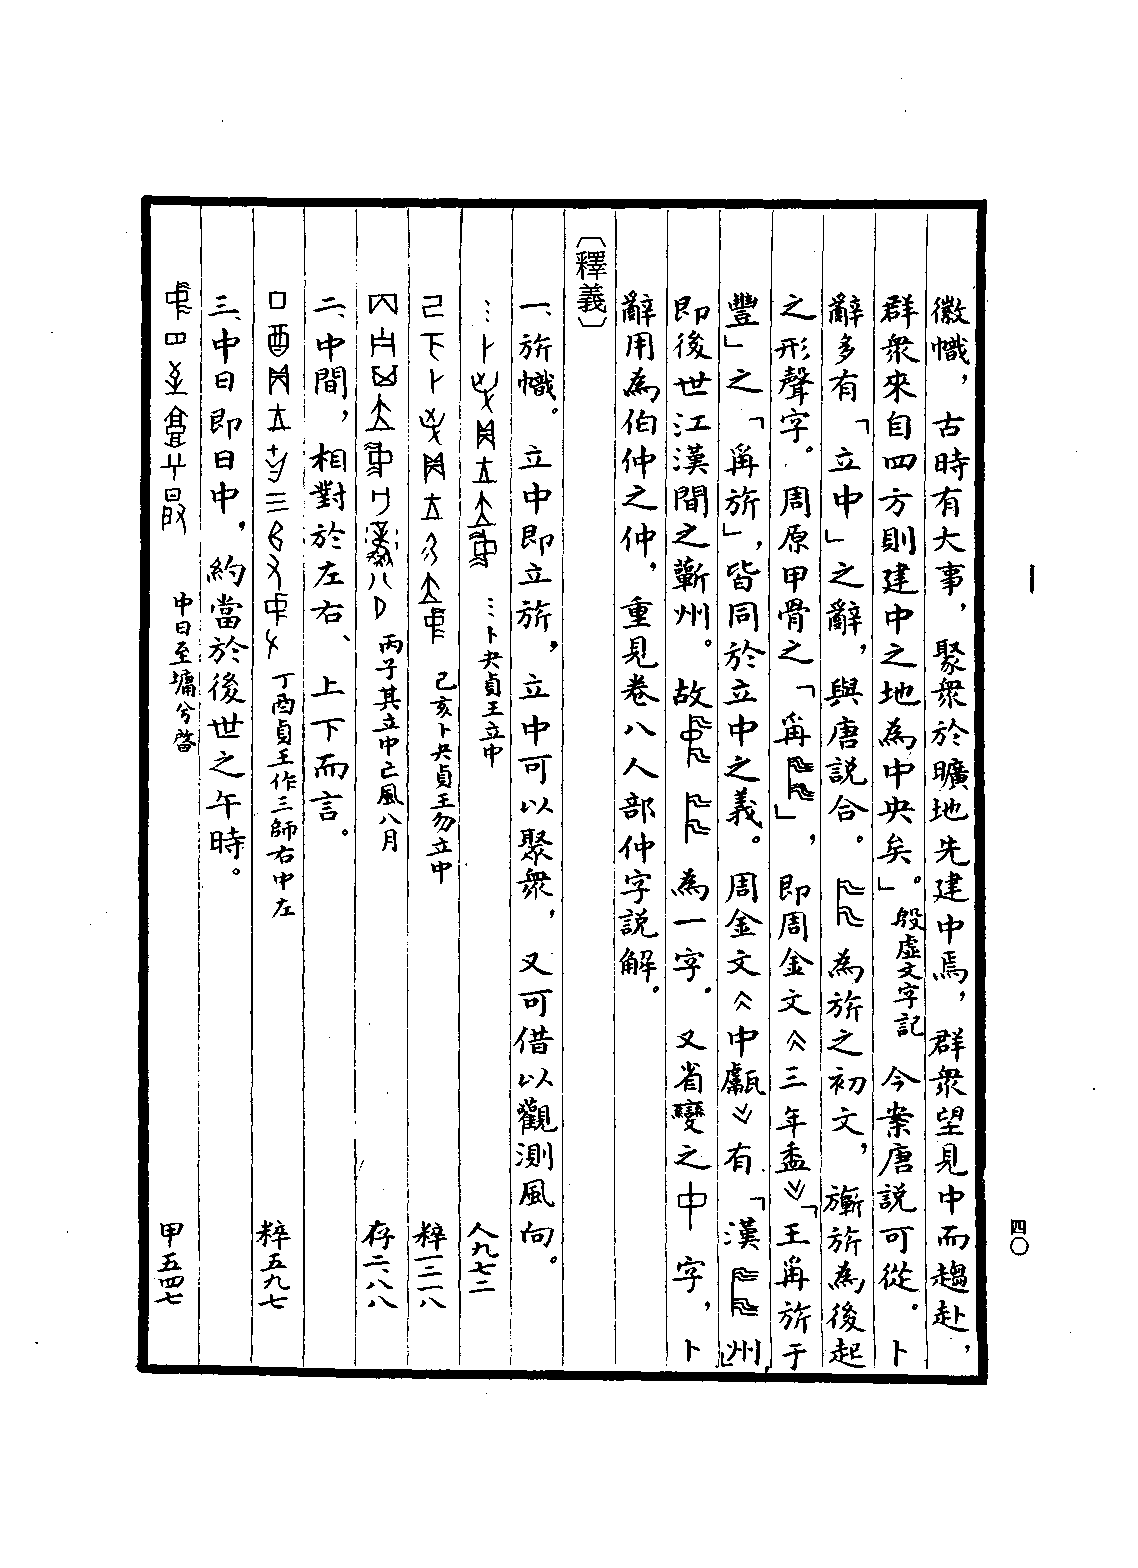 徽幟，古時有大事，聚衆於曠地先建中焉，群衆望見中而趨赴，
群衆來自四方則建中之地為中央矣。」殷虛文字記　今案唐説可從。卜
辭多有「立中」之辭，與唐説合。為旂之初文，旂為後起
之形聲字。周原甲骨之「爯」，即周金文《三年盉》「王爯旂于
豐」之「爯旂」，皆同於立中之義。周金文《中甗》有「漢州」，
即後世江漢間之蘄州。故為一字。又省變之中字，卜
辭用為伯仲之仲，重見卷八人部仲字説解。
〔釋義〕
一、旂幟。立中即立旂，立中可以聚衆，又可借以觀測風向。
…卜夬貞王立中　人九七二
己亥卜夬貞王勿立中　粹一二一八
丙子其立中亡風八月　存二·八八
二、中間，相對於左右、上下而言。
丁酉貞王作三師右中左　粹五九七
三、中日即日中，約當於後世之午時。
中日至墉兮啓　甲五四七
四〇